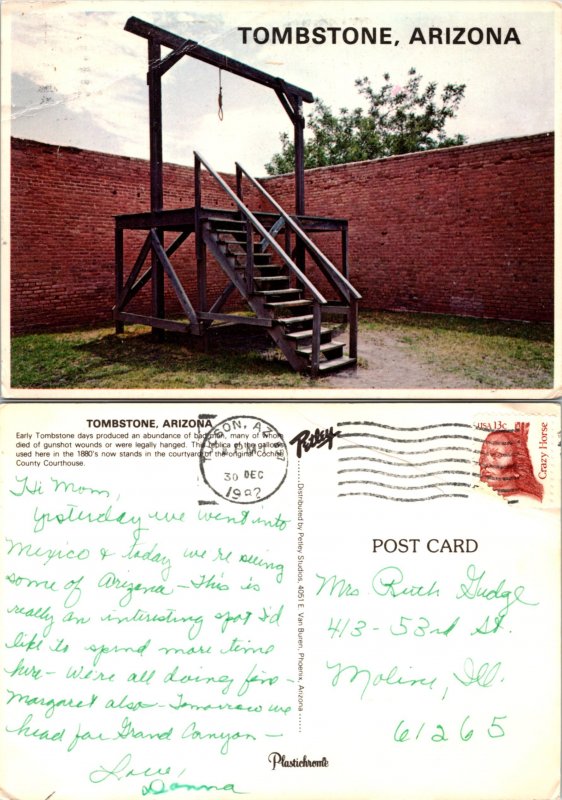 TOMBSTONE, ARIZONA
TOMBSTONE, ARIZONA
Early Tombstone days produced an abundance of bad men, many of whom
died of gunshot wounds or were legally hanged. This replica of the gallows
used here in the 1880's now stands in the courtyard of the original Cochise
County Courthouse.
Hi Mom,
Yesterday we went into
Mexico & today we're seeing
some of Arizona - This is
really an interesting spot I'd
like to spend more time
here - We're all doing fine -
Margaret also - Tomorrow we
head for Grand Canyon -
Love,
Donna
TUCSON, AZ
30 DEC
Petley
Distributed by Petley Studios, 4051 E. Van Buren, Phoenix, Arizona
Plastichrome
USA 13c
Crazy Horse
POST CARD
Mrs Ruth Gudge
413 - 53rd St.
Moline, Ill.
61265